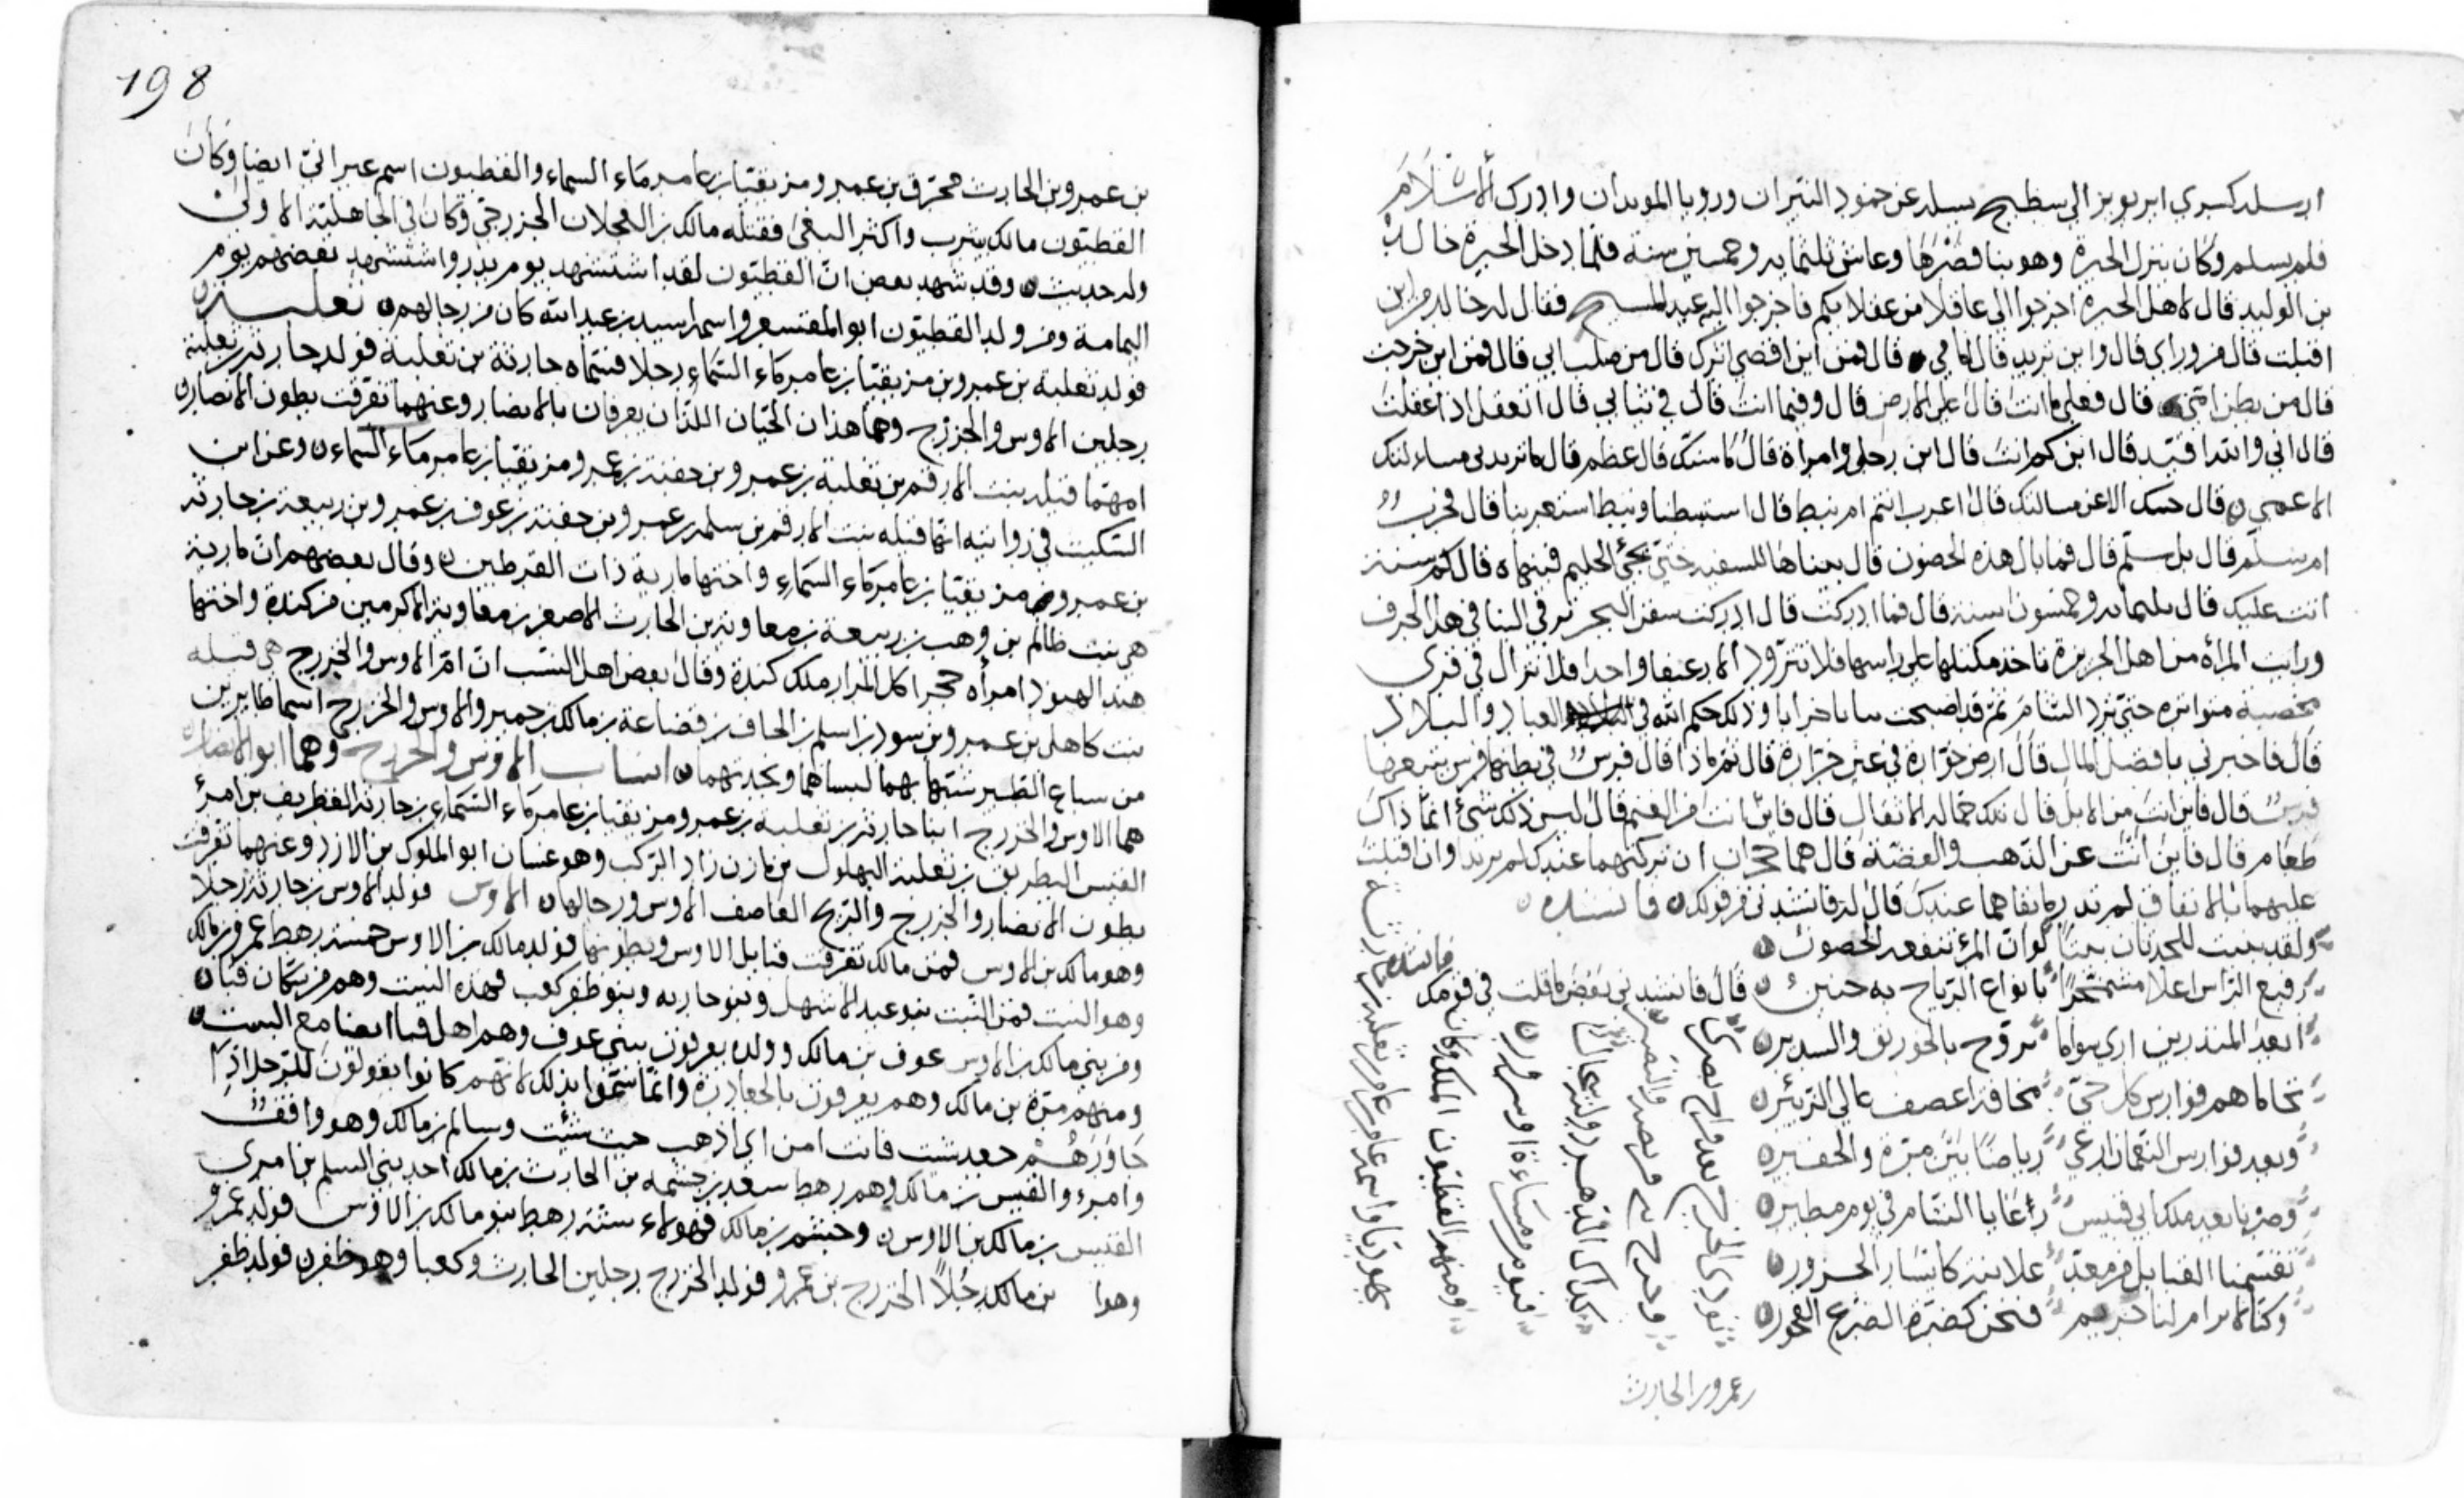 ارسله كسرى ابرويز الى سطيح يسله عن خمود النيران ورويا الموبدان وادرك الاسلام
فلم يسلم وكان ينزل الحيرة وهو بنا قصرها وعاش ثلثمايه وخمسين سنة فلما دخل الحيرة خالد
بن الوليد قال لاهل الحيرة اخرجوا الي عاقلا من عقلايكم فاخرجوا اليه عبد المسيح فقال له خالد من اين
اقبلت قال من وراي قال واين تريد قال امامي قال فمن اين اقصى اثرك قال من صلب ابي قال فمن اين خرجت
قال من بطن امي قال فعلى ما انت قال على الارض قال وفيما انت قال في ثيابي قال اتعقل اذا عقلت
قال اي والله اقيد قال ابن كم انت قال ابن رجل وامراة قال ما سنك قال عظم قال ما تزيدني مساءلتك
الا عمى قال ما اجبتك الا عن مسالتك قال اعرب انتم ام نبيط قال استنبطنا ونبيط استعربنا قال فحرب
ام سلم قال بل سلم قال فما بال هذه الحصون قال بنيناها للسفيه حتى يجئ الحليم فينهاه قال كم سنة
اتت عليك قال ثلثمايه وخمسون سنة قال فما ادركت قال ادركت سفن البحر ترفى الينا في هذا الجرف
ورايت المراة من اهل الحيرة تاخذ مكتلها على راسها فلا تتزود الا رغيفا واحدا فلا تزال في قرى
مخصبة متواترة حتى ترد الشام ثم قد اصبحت يبابا خرابا وذلك حكم الله في العباد والبلاد
قال فاخبرني بافضل المال قال ارض خوارة في عين خرارة قال ثم ماذا قال فرس في بطنها فرس يتبعها
فرس قال فاين انت من الابل قال تلك حماله الاثقال قال فاين انت من الغنم قال ليس ذلك شئ انما ذاك
طعام قال فاين انت عن الذهب والفضة قال هما حجران ان تركتهما عندك لم يزيدا وان اقبلت
عليهما بالانفاق لم تدر ما بقاهما عندك قال له فانشدني من قولك فانشده
ولقد بنيت للحدثان بيتا لوان المرء تنفعه الحصون
رفيع الراس اعلا مشمخرا بانواع الرياح به حنين قال فانشدني بعض ما قلت في قومك
فانشده
ابعد المنذرين ارى سواما تروح بالخورنق والسدير
تحاماهم فوارس كل حي مخافة اعصف عالي الزئير
وبعد فوارس النعمان ارعي رياضا بين مرة والحفير
وصرنا بعد ملك ابي قبيس في يوم مطير
تقسمنا القبايل من معد علانية كايسار الجزور
وكنا لا يرام لنا حريم فنحن كضرة الضرع الفخور
نودي الخرج بعد خراج بصرى
وخرج من قريظة والنضير
كذاك الدهر دولته سجال
فيوم من مساءة او سرور
ومنهم الفطيون الملك وكان
يهوديا واسمه عامر بن عامر بن ثعلبه بن حارثة
بن عمرو بن الحارث
198
بن عمرو بن الحارث محرق بن عمرو مزيقيا بن عامر ماء السماء والفطيون اسم عبراني ايضا وكان
الفطيون مالك يثرب واكثر البغي فقتله مالك بن العجلان الخزرجي وكان في الجاهلية الاولى
وله حديث وقد شهد بعض ان الفطيون لقد استشهد يوم بدر واستشهد بعضهم يوم
اليمامة ومن ولد الفطيون ابو المقشعر واسمه اسيد بن عبد الله كان من رجالهم ثعلبة
فولد ثعلبة بن عمرو بن مزيقيا بن عامر ماء السماء رجلا فسماه حارثة بن ثعلبة فولد حارثة بن ثعلبة
رجلين الاوس والخزرج وهما هذان الحيان اللذان يعرفان بالانصار وعنهما تفرقت بطون الانصار
امهما قيله بنت الارقم بن ثعلبة بن عمرو بن جفنة بن عمرو مزيقيا بن عامر ماء السماء وعن ابن
السكيت في روايته انها قيله بنت الارقم بن سلمه بن عمرو بن جفنة بن عوف بن عمرو بن ربيعة بن حارثة
بن عمرو مزيقيا بن عامر ماء السماء واختها مارية ذات القرطين وقال بعضهم ان مارية
هي بنت ظالم بن وهب بن ربيعة بن معاوية بن الحارث الاصغر بن معاوية الاكرمين من كندة واختها
هند الهنود امراة حجر اكل المرار ملك كندة وقال بعض اهل النسب ان ام الاوس والخزرج هي قيله
بنت كاهل بن عمرو بن سود بن اسلم بن الحاف بن قضاعة بن مالك بن حمير والاوس والخزرج اسما طايرين
من سباع الطير شبها بهما لباسهما ونجدتهما انساب الاوس والخزرج وهما ابو الانصار
هما الاوس والخزرج ابنا حارثة بن ثعلبة بن عمرو مزيقيا بن عامر ماء السماء بن حارثة الغطريف بن امرئ
القيس البطريق بن ثعلبة البهلول بن مازن زاد الركب وهو غسان ابو الملوك بن الازد وعنهما تفرقت
بطون الانصار والخزرج والريح العاصف الاوس ورجالها الاوس فولد الاوس بن حارثة رجلا
وهو مالك بن الاوس فمن مالك تفرقت قبايل الاوس وبطونها فولد مالك بن الاوس خمسة رهط عمرو بن مالك
وهو النبيت فمن النبيت بنو عبد الاشهل وبنو حارثه وبنو ظفر كعب فهذه النبيت وهم من سكان قبا
ومن بني مالك بن الاوس عوف بن مالك وولده يعرفون ببني عوف وهم اهل قبا ايضا مع النبيت
ومنهم مرة بن مالك وهم يعرفون بالجعادرة وانما سموا بذلك لانهم كانوا يقولون للرجل اذا
جاورهم جعد شئت فانت امن اي اذهب حيث شئت وسالم بن مالك وهو واقف
وامرؤ القيس بن مالك وهم رهط سعد بن خيثمه بن الحارث بن مالك احد بني السلم بن امري
القيس بن مالك بن الاوس وجشم بن مالك فهولاء ستة رهط بنو مالك بن الاوس فولد عمرو
وهوا بن مالك رجلا الخزرج بن عمرو فولد الخزرج رجلين الحارث وكعبا وهو ظفر فولد ظفر